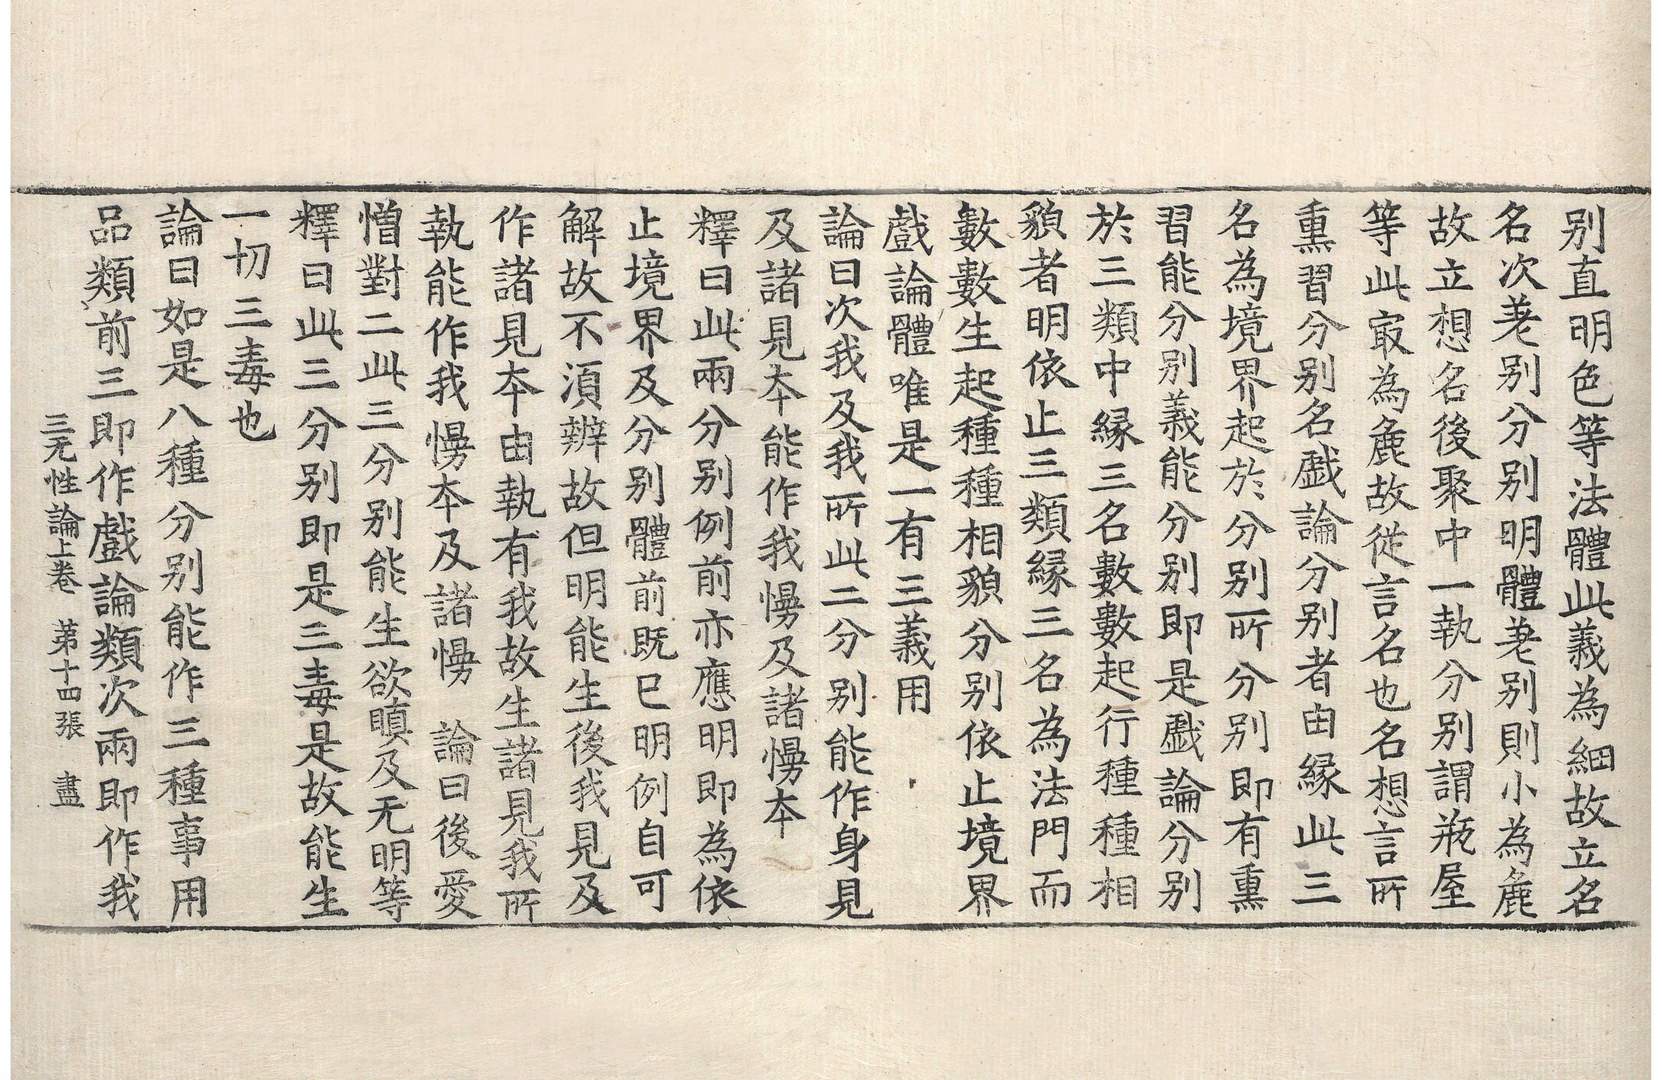 别直明色等法體此義為細故立名
名次差别分别明體差别則小為麁
故立想名後聚中一執分别謂瓶屋
等此㝡為麁故従言名也名想言所
熏習分别名戯論分别者由縁此三
名為境界起於分别所分别即有熏
習能分别義能分别即是戯論分别
於三類中縁三名數數起行種種相
貌者明依止三類縁三名為法門而
數數生起種種相貌分别依止境界
戲論體唯是一有三義用
論曰次我及我所此二分别能作身見
及諸見夲能作我慢及諸慢夲
釋曰此兩分别例前亦應明即為依
止境界及分别體前既已明例自可
解故不湏辦故但明能生後我見及
作諸見夲由執有我故生諸見我所
執能作我慢夲及諸慢　論曰後愛
憎對二此三分别能生欲瞋及无明等
釋曰此三分别即是三毒是故能生
一切三毒也
論曰如是八種分别能作三種事用
品類前三即作戲論類次兩即作我
三无性論上卷　苐十四張　盡